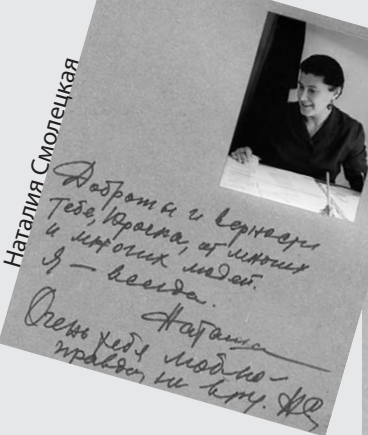 Наталия Смолецкая
Доброты и верности
Тебе, Юрочка, от многих
и многих людей.
Я — всегда.
Наташа
Очень тебя люблю —
правда, не вру.